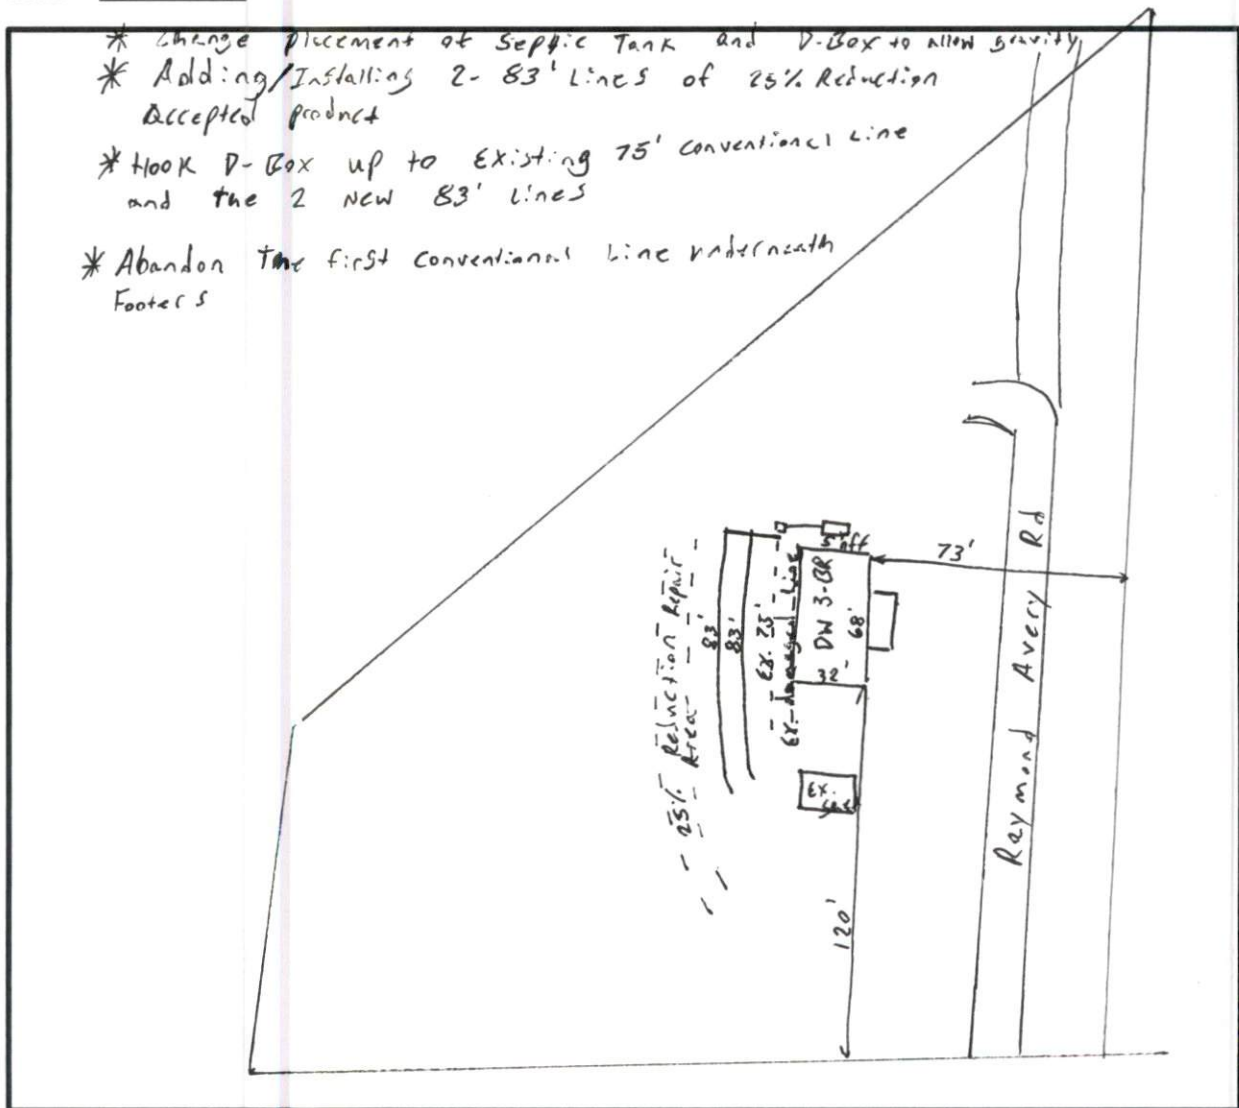 * Change placement of Septic Tank and D-Box to allow gravity
* Adding/Installing 2- 83' Lines of 25% Reduction
Accepted product
* Hook D-Box up to Existing 75' conventional Line
and the 2 New 83' Lines
* Abandon The first conventional Line underneath
Footers
5' off
73'
DW 3-BR
68'
32'
Ex. 75'
Ex. damaged Line
83'
83'
25% Reduction Repair
Area
Ex.
120'
Raymond Avery Rd